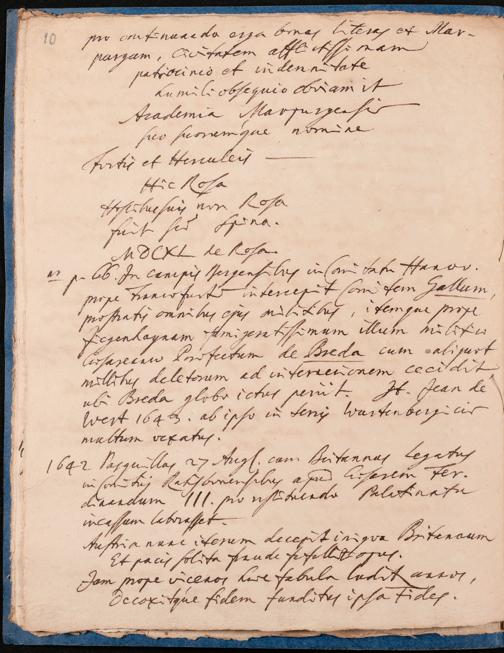 10
pro continuando erga bonas literas et Mar-
purgam, civitatem afflictissimam
patrocinio et indemnitate
humili obsequio obviam it
Academia Marpurgensis
suo suorumque nomine
Fortis et Herculeis —
Hic Rosa
Hostibus suis non Rosa
fuit sed Spina.
MDCXL de Rosa.
p. 66. In campis Bergensibus in Comitatu Hanov.
prope Francofurtum intercepit Comitem Gallum,
prostratis omnibus ejus militibus, itemque prope
Ziegenhaynam famigeratissimum illum militiae
Caesareanae Praefectum de Breda cum aliquot
millibus deletorum ad internecionem cecidit
ubi Breda globo ictus periit. It. Jean de
Wert 1643. ab ipso in terris Wurtenbergicis
multum vexatus.
1642 Pasquillus 27 Aug. cum Britannus legatus
in comitiis Ratisbonensibus apud Caesarem Fer-
dinandum III. pro restituendo Palatinatu
incassum laborasset.
Austria nunc iterum decepit iniqua Britannum
Et pacis solita fraude fefellit opus.
Jam prope vicenos haec fabula ludit annos,
Decoxitque fidem funditus ipsa Fides.